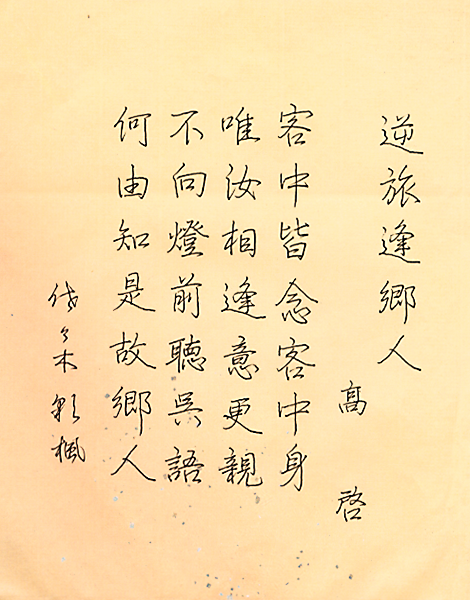 逆旅逢鄉人
高啓
客中皆念客中身
唯汝相逢意更親
不向燈前聽吳語
何由知是故鄉人
代々木彩楓